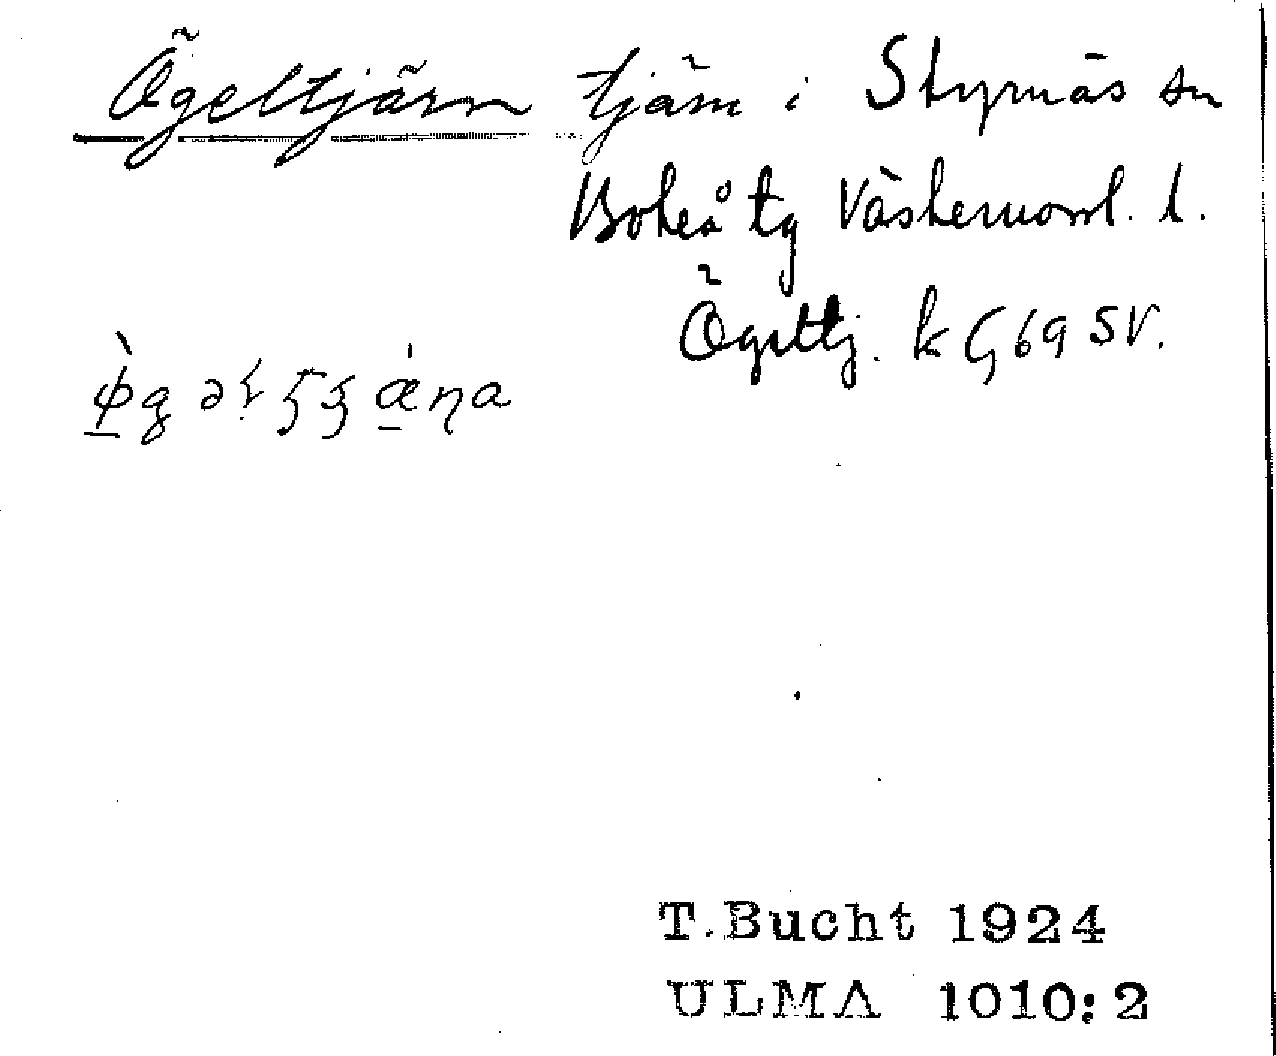 Ögeltjärn tjärn i Styrnäs sn
Boteå tg Västernorrl. l.
Ögeltj. k G 69 SV.
T. Bucht 1924
ULMA 1010:2